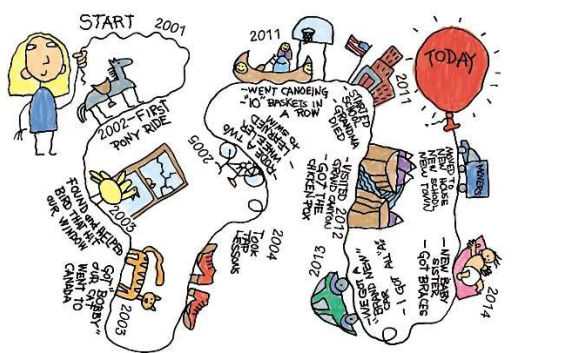 START 2001
2002-FIRST
PONY RIDE
2003
FOUND and HELPED
BIRD THAT HIT
OUR WINDOW
GOT "BOBBY"
OUR CAT
WENT TO
CANADA
2003
2004
TOOK
TAP
LESSONS
2005
- RODE A TWO
WHEELER
- LEARNED
TO SWIM
2011
-WENT CANOEING
-"10" BASKETS IN
A ROW
2011
- STARTED
SCHOOL
- GRANDMA
DIED
- VISITED 2012
GRAND CANYON
- GOT THE
CHICKEN POX
2013
- WE GOT A
"GRAND NEW"
CAR
- I GOT ALL A's
2014
- NEW BABY
SISTER
- GOT BRACES
MOVED TO
NEW HOUSE
NEW SCHOOL
NEW TOWN
MOVERS
TODAY